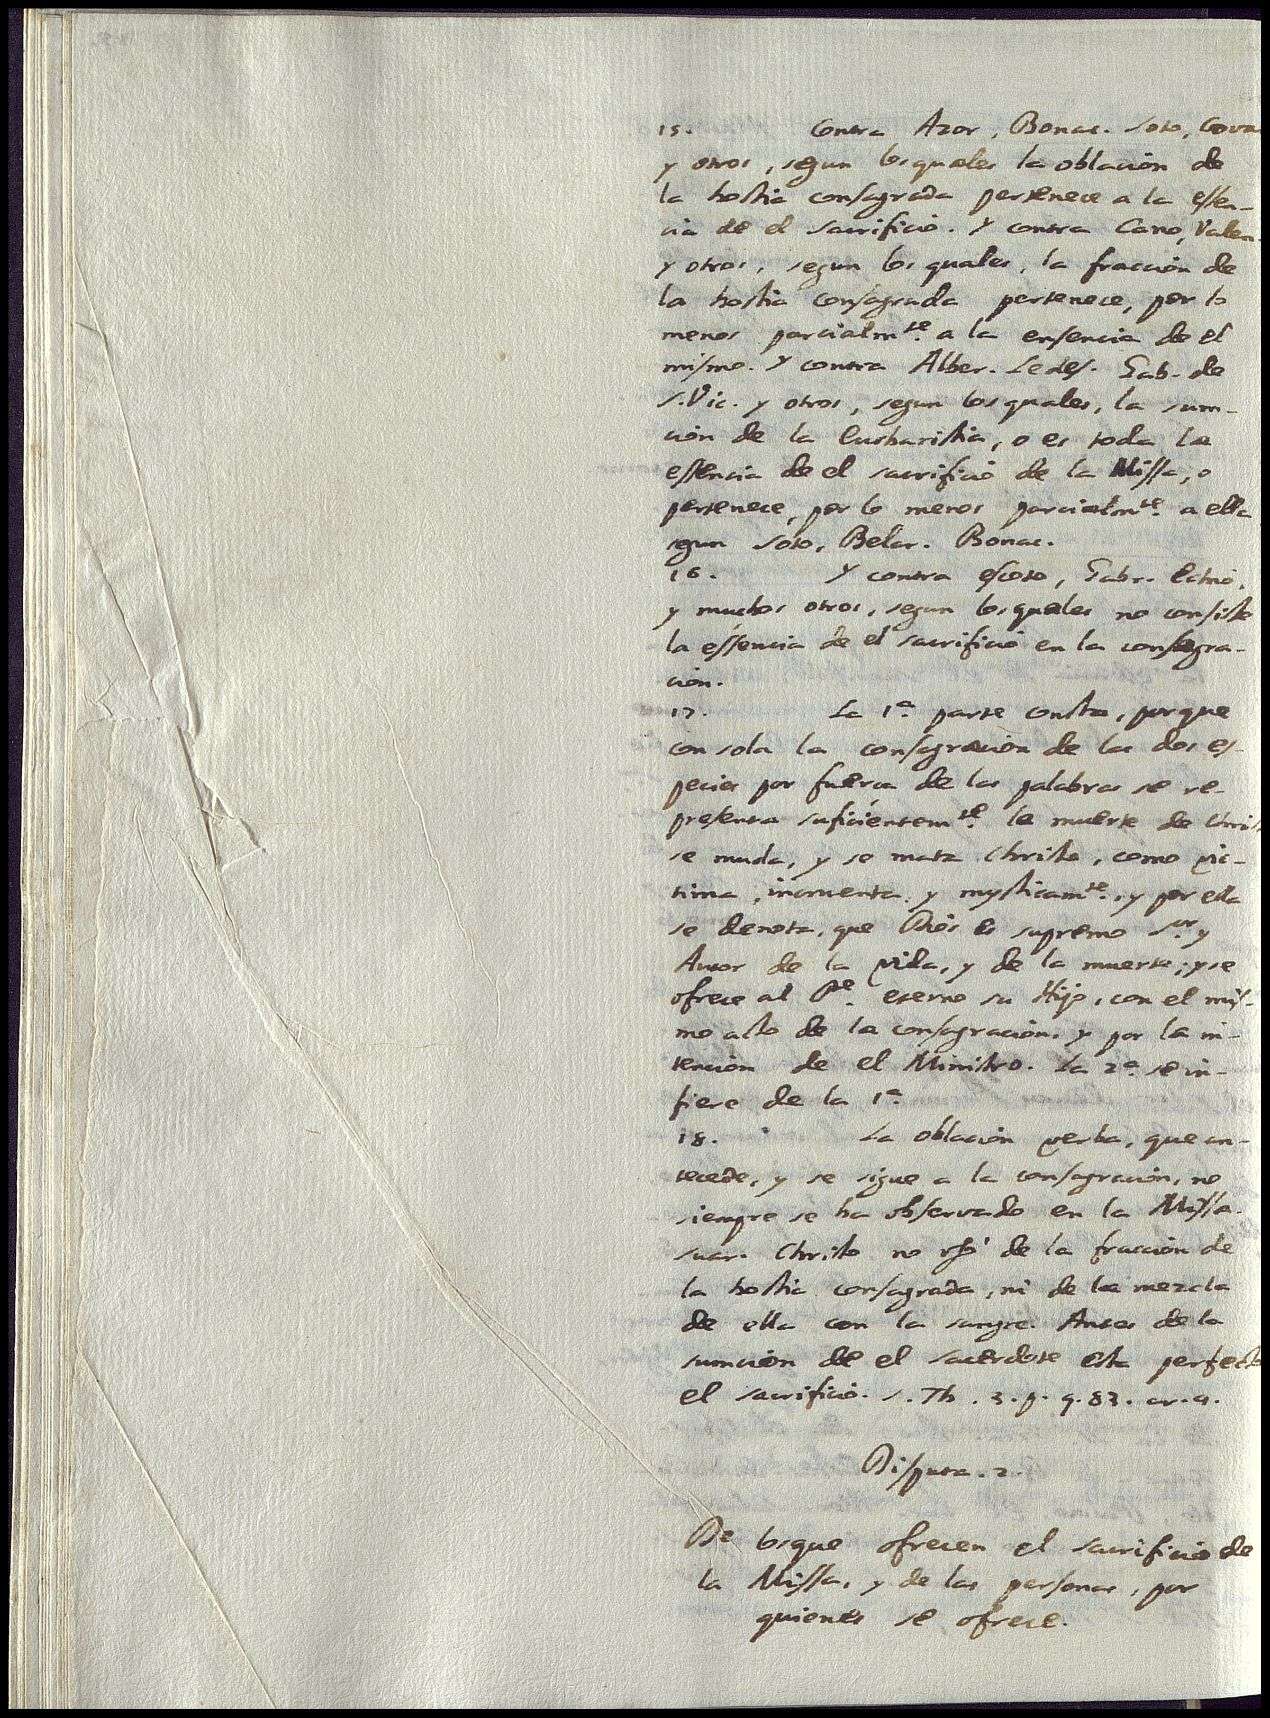 15. Contra Azor, Bonac. Soto, Cova
y otros, segun losquales la oblacion de
la hostia consagrada pertenece a la essen-
cia de el sacrificio. Y contra Cano, Valen.
y otros, segun los quales, la fraccion de
la hostia consagrada pertenece, por lo
menos parcialmte. a la ensencia de el
mismo. Y contra Alber. Ledes. Gab. de
S. Vic. y otros, segun los quales, la sum-
cion de la Eucharistia, o es toda la
essencia de el sacrificio de la Missa, o
pertenece, por lo menos parcialmte. a ella
segun Soto, Belar. Bonac.
16. Y contra Escoto, Gabr.
y muchos otros, segun losquales no consiste
la essencia de el sacrificio en la consagra-
cion.
17. La 1a. parte consta, porque
con sola la consagracion de las dos es-
pecies por fuerca de las palabras se re-
presenta suficientemte. la muerte de Christ
se muda, y se mata Christo, como vic-
tima, incruenta, y mysticamte., y por ella
se denota, que Dios es supremo Sor. y
Autor de la vida, y de la muerte; y se
ofrece al Pe. eterno su Hijo, con el mis-
mo acto de la consagracion, y por la in-
tencion de el Ministro. La 2a. se in-
fiere de la 1a.
18. La oblacion verba, que an-
tecede, y se sigue a la consagracion, no
siempre se ha observado en la Missa.
Suar. Christo no usó de la fraccion de
la hostia consagrada, ni de la mezcla
de ella con la sangre. Antes de la
sumcion de el sacerdote esta perfecto
el sacrificio. S. Th. 3. p. q. 83. ar. 4.
Disputa. 2.
De losque ofrecen el sacrificio de
la Missa, y de las personas, por
quienes se ofrece.